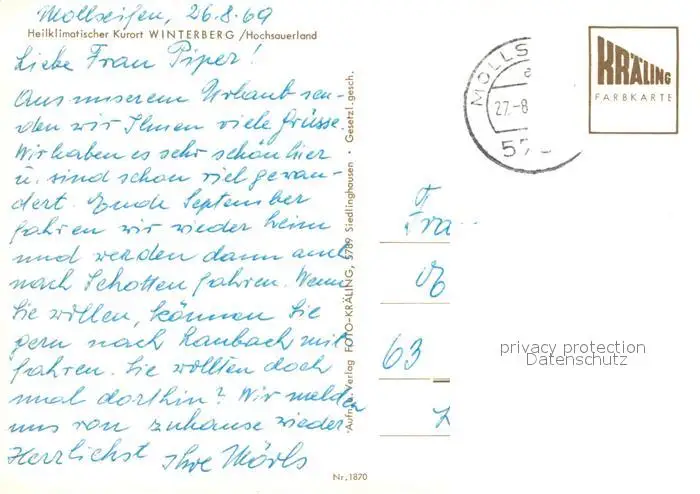 Mollseifen, 26.8.69
Heilklimatischer Kurort WINTERBERG /Hochsauerland
Liebe Frau Piper!
Aus unserem Urlaub sen-
den wir Ihnen viele Grüsse.
Wir haben es sehr schön hier
u. sind schon viel gewan-
dert. Ende September
fahren wir wieder heim
und werden dann auch
nach Schotten fahren. Wenn
Sie wollen, können Sie
gern nach Laubach mit
fahren. Sie wollten doch
mal dorthin? Wir melden
uns von zuhause wieder
Herzlichst Ihre Mörls
Nr. 1870
Aufn. u. Verlag FOTO-KRÄLING, 5789 Siedlinghausen · Gesetzl. gesch.
MOLLS
27.-8
57
KRÄLING
FARBKARTE
Fra
63
privacy protection
Datenschutz